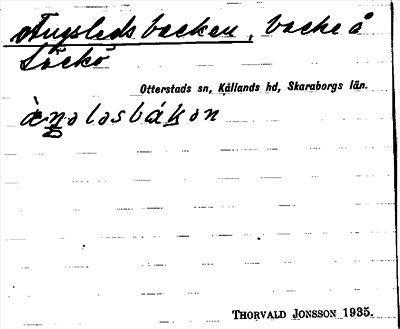 Ängsledsbacken, backe å
Säckö
Otterstads sn, Kållands hd, Skaraborgs län.
THORVALD JONSSON 1935.